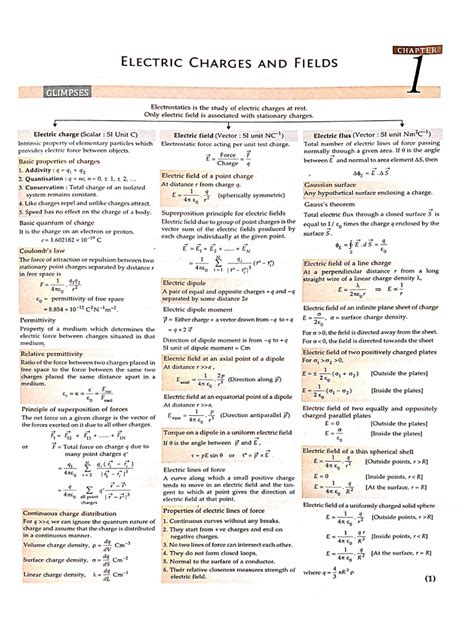 CHAPTER
1
ELECTRIC CHARGES AND FIELDS
GLIMPSES
Electrostatics is the study of electric charges at rest.
Only electric field is associated with stationary charges.
Electric charge (Scalar : SI Unit C)
Intrinsic property of elementary particles which
provides electric force between objects.
Basic properties of charges
1. Additivity : q = q₁ + q₂
2. Quantisation : q = ne; n = 0, ± 1, ± 2, ...
3. Conservation : Total charge of an isolated
system remains constant.
4. Like charges repel and unlike charges attract.
5. Speed has no effect on the charge of a body.
Basic quantum of charge
It is the charge on an electron or proton.
e = 1.602182 × 10⁻¹⁹ C
Coulomb's law
The force of attraction or repulsion between two
stationary point charges separated by distance r
in free space is
F = 1/4πε₀ · q₁q₂/r²
ε₀ = permittivity of free space
= 8.854 × 10⁻¹² C²N⁻¹m⁻².
Permittivity
Property of a medium which determines the
electric force between charges situated in that
medium.
Relative permittivity
Ratio of the force between two charges placed in
free space to the force between the same two
charges placed the same distance apart in a
medium.
Principle of superposition of forces
The net force on a given charge is the vector of
the forces exerted on it due to all other charges.
or
Total force on charge q due to
many point charges
Continuous charge distribution
For q >> e we can ignore the quantum nature of
charge and assume that the charge is distributed
in a continuous manner.
Volume charge density, ρ = dq/dV Cm⁻³
Surface charge density, σ = dq/dS Cm⁻²
Linear charge density, λ = dq/dL Cm⁻¹
Electric field (Vector : SI unit NC⁻¹)
Electrostatic force acting per unit test charge.
E⃗ = Force/Charge = F⃗/q
Electric field of a point charge
At distance r from charge q.
E = 1/4πε₀ · q/r² (spherically symmetric)
Superposition principle for electric fields
Electric field due to group of point charges is the
vector sum of the electric fields produced by
each charge individually at the given point.
E⃗ = E⃗₁ + E⃗₂ + ...... + E⃗N
Electric dipole
A pair of equal and opposite charges + q and −q
separated by some distance 2a
Electric dipole moment
p⃗ = Either charge × a vector drawn from −q to + q
= q × 2 l⃗
Direction of dipole moment is from −q to + q
SI unit of dipole moment = Cm
Electric field at an axial point of a dipole
At distance r >> a,
(Direction along p⃗)
Electric field at an equatorial point of a dipole
At distance r >> a.
(Direction antiparallel p⃗)
Torque on a dipole in a uniform electric field
If θ is the angle between p⃗ and E⃗
τ = pE sin θ or τ⃗ = p⃗ × E⃗
Electric lines of force
A curve along which a small positive charge
tends to move in an electric field and the tan-
gent to which at point gives the direction of
electric field at that point.
Properties of electric lines of force
1. Continuous curves without any breaks.
2. They start from +ve charges and end on
negative charges.
3. No two lines of force can intersect each other.
4. They do not form closed loops.
5. Normal to the surface of a conductor.
6. Their relative closeness measures strength of
electric field.
Electric flux (Vector : SI unit Nm²C⁻¹)
Total number of electric lines of force passing
normally through a given area. If θ is the angle
between E⃗ and normal to area element ΔS, then
Gaussian surface
Any hypothetical surface enclosing a charge.
Gauss's theorem
Total electric flux through a closed surface S⃗ is
equal to 1/ε₀ times the charge q enclosed by the
surface S⃗.
Electric field of a line charge
At a perpendicular distance r from a long
straight wire of a linear charge density λ,
Electric field of an infinite plane sheet of charge
E = σ/2ε₀, σ = surface charge density.
For σ > 0, the field is directed away from the sheet.
For σ < 0, the field is directed towards the sheet.
Electric field of two positively charged plates
For σ₁ > σ₂,
[Outside the plates]
[Inside the plates]
Electric field of two equally and oppositely
charged parallel plates
E = 0 [Outside the plates]
E = σ/ε₀ [Inside the plates]
Electric field of a thin spherical shell
E = 1/4πε₀ · q/r² [Outside points, r > R]
E = 0 [Inside points, r < R]
E = 1/4πε₀ · q/R² [At the surface, r = R]
Electric field of a uniformly charged solid sphere
E = 1/4πε₀ · q/r² [Outside points, r > R]
[Inside points, r < R]
[At the surface, r = R]
where q = 4/3 πR³ρ
(1)